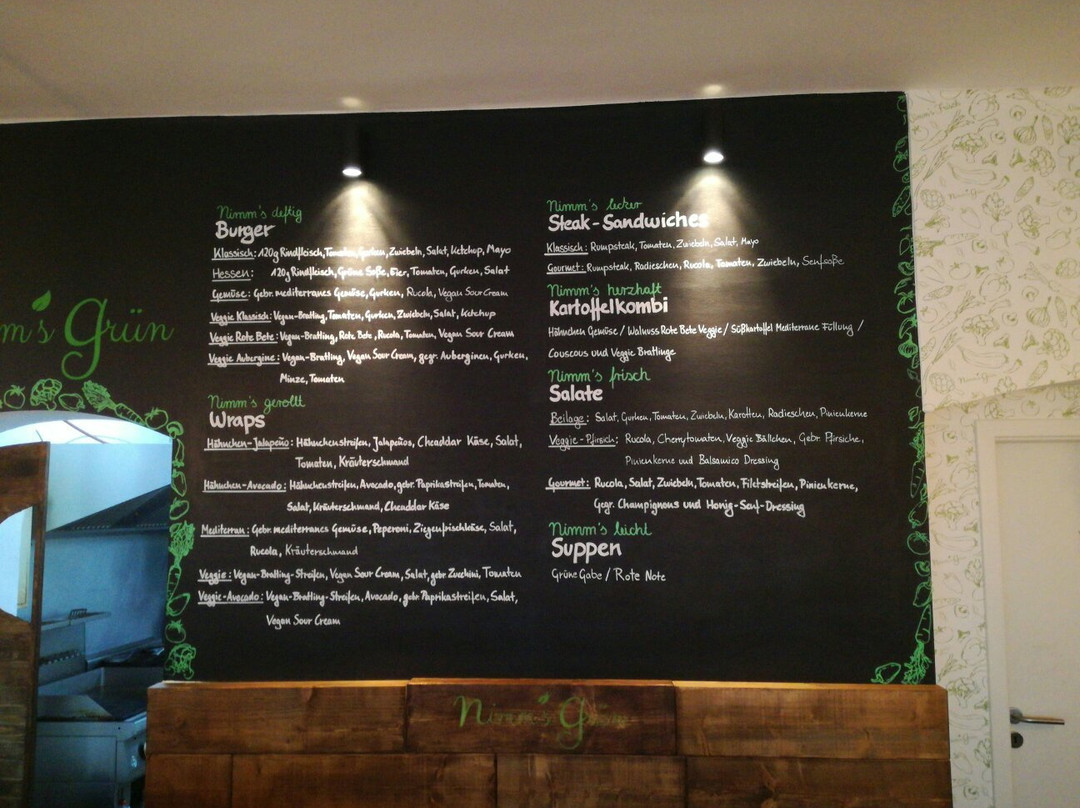 m's Grün
Nimm's deftig
Burger
Klassisch: 120g Rindfleisch, Tomaten, Gurken, Zwiebeln, Salat, Ketchup, Mayo
Hessen: 120g Rindfleisch, Grüne Soße, Eier, Tomaten, Gurken, Salat
Gemüse: Gebr. mediterranes Gemüse, Gurken, Rucola, Vegan Sour Cream
Veggie Klassisch: Vegan-Bratling, Tomaten, Gurken, Zwiebeln, Salat, Ketchup
Veggie Rote Bete: Vegan-Bratling, Rote Bete, Rucola, Tomaten, Vegan Sour Cream
Veggie Aubergine: Vegan-Bratling, Vegan Sour Cream, gegr. Auberginen, Gurken,
Minze, Tomaten
Nimm's gerollt
Wraps
Hähnchen-Jalapeño: Hähnchenstreifen, Jalapeños, Cheaddar Käse, Salat,
Tomaten, Kräuterschmand
Hähnchen-Avocado: Hähnchenstreifen, Avocado, gebr. Paprikastreifen, Tomaten,
Salat, Kräuterschmand, Cheaddar Käse
Mediterran: Gebr. mediterranes Gemüse, Peperoni, Ziegenfrischkäse, Salat,
Rucola, Kräuterschmand
Veggie: Vegan-Bratling-Streifen, Vegan Sour Cream, Salat, gebr. Zucchini, Tomaten
Veggie-Avocado: Vegan-Bratling-Streifen, Avocado, gebr. Paprikastreifen, Salat,
Vegan Sour Cream
Nimm's lecker
Steak-Sandwiches
Klassisch: Rumpsteak, Tomaten, Zwiebeln, Salat, Mayo
Gourmet: Rumpsteak, Radieschen, Rucola, Tomaten, Zwiebeln, Senfsoße
Nimm's herzhaft
Kartoffelkombi
Hähnchen Gemüse / Walnuss Rote Bete Veggie / Süßkartoffel Mediterrane Füllung /
Couscous und Veggie Bratlinge
Nimm's frisch
Salate
Beilage: Salat, Gurken, Tomaten, Zwiebeln, Karotten, Radieschen, Pinienkerne
Veggie-Pfirsich: Rucola, Cherrytomaten, Veggie Bällchen, Gebr. Pfirsiche,
Pinienkerne und Balsamico Dressing
Gourmet: Rucola, Salat, Zwiebeln, Tomaten, Filetstreifen, Pinienkerne,
Gegr. Champignons und Honig-Senf-Dressing
Nimm's leicht
Suppen
Grüne Gabe / Rote Note
Nimm's Grün